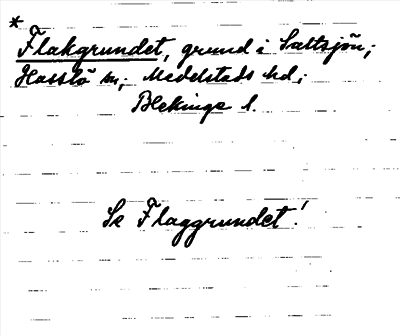 * Flakgrundet, grund i Saltsjön;
Hasslö sn; Medelstads hd;
Blekinge l.
Se Flaggrundet!